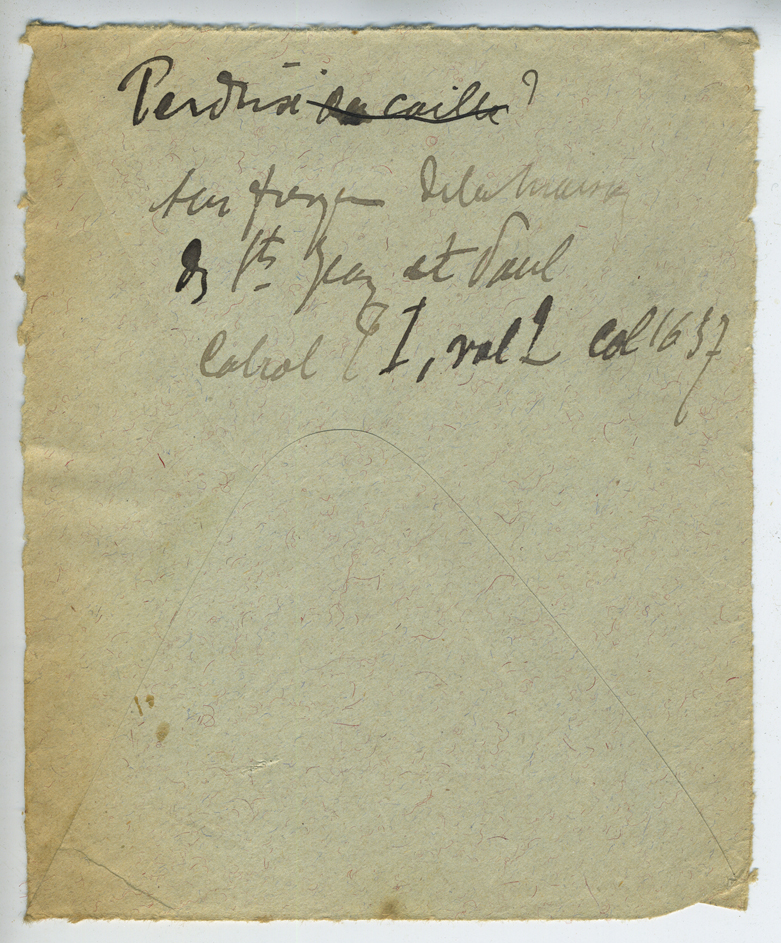 Perdrix ou caille ?
sur fresque de la maison
des Sts Jean et Paul
Cabrol T I, vol 2 col 1637